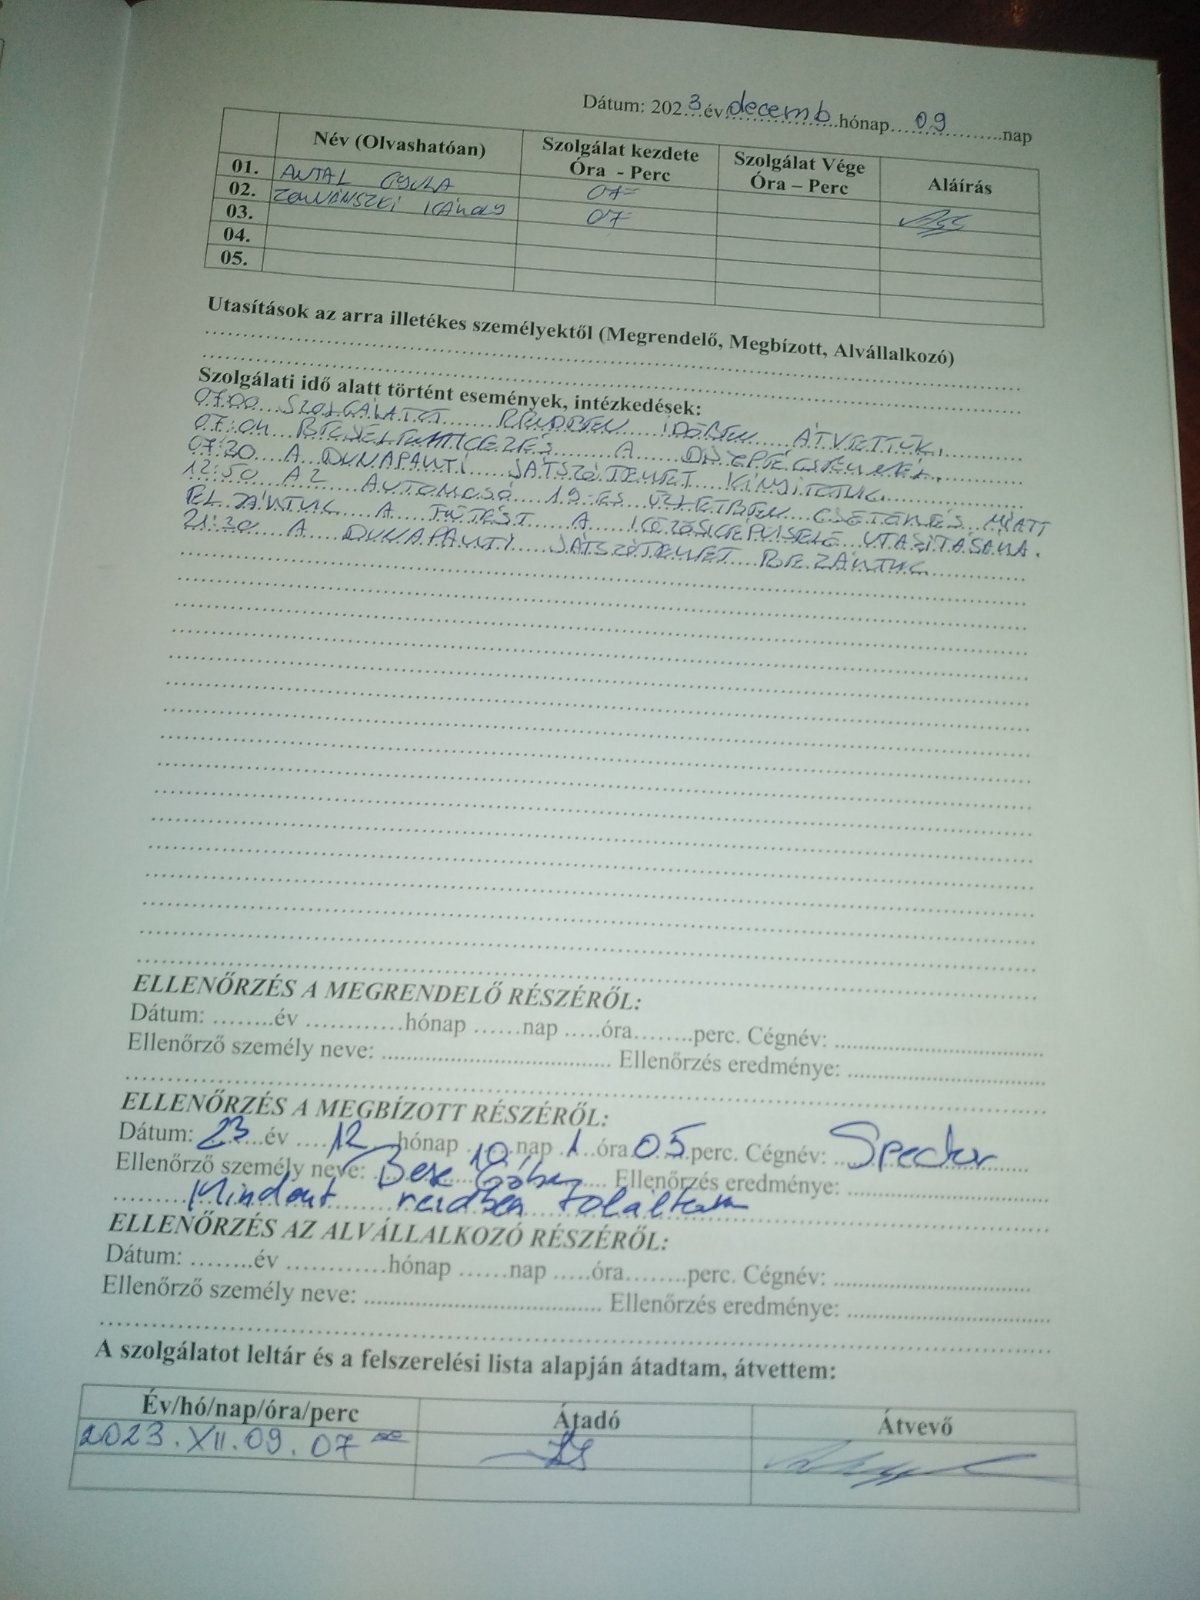 Dátum: 2023 év decemb. hónap 09 nap
Név (Olvashatóan) Szolgálat kezdete Óra - Perc Szolgálat Vége Óra – Perc Aláírás
01. ANTAL GYULA 07
02. KÁROLY 07
03.
04.
05.
Utasítások az arra illetékes személyektől (Megrendelő, Megbízott, Alvállalkozó)
Szolgálati idő alatt történt események, intézkedések:
07:00 SZOLGÁLATOT RENDBEN IDŐBEN ÁTVETTÜK.
07:04 BEJELENTKEZÉS A DISZPÉCSERNÉL.
07:30 A DUNAPARTI JÁTSZÓTERET KINYITOTTUK.
12:50 AZ AUTOMOSÓ 19-ES ÜZLETBEN CSŐTÖRÉS MIATT
EL ZÁRTUK A FŰTÉST A KÖZÖSKÉPVISELŐ UTASÍTÁSÁRA.
21:30 A DUNAPARTI JÁTSZÓTERET BEZÁRTUK
ELLENŐRZÉS A MEGRENDELŐ RÉSZÉRŐL:
Dátum: ........év ............hónap ......nap .....óra........perc. Cégnév: ..............................
Ellenőrző személy neve: .................................. Ellenőrzés eredménye: ..............................
ELLENŐRZÉS A MEGBÍZOTT RÉSZÉRŐL:
Dátum: 23 év 12 hónap 10 nap 1 óra 05 perc. Cégnév: Spectur
Ellenőrző személy neve: Bese Gábor Ellenőrzés eredménye:
Mindent rendben találtam
ELLENŐRZÉS AZ ALVÁLLALKOZÓ RÉSZÉRŐL:
Dátum: ........év ............hónap ......nap .....óra........perc. Cégnév: ..............................
Ellenőrző személy neve: .................................. Ellenőrzés eredménye: ..............................
A szolgálatot leltár és a felszerelési lista alapján átadtam, átvettem:
Év/hó/nap/óra/perc Átadó Átvevő
2023. XII. 09. 07 00